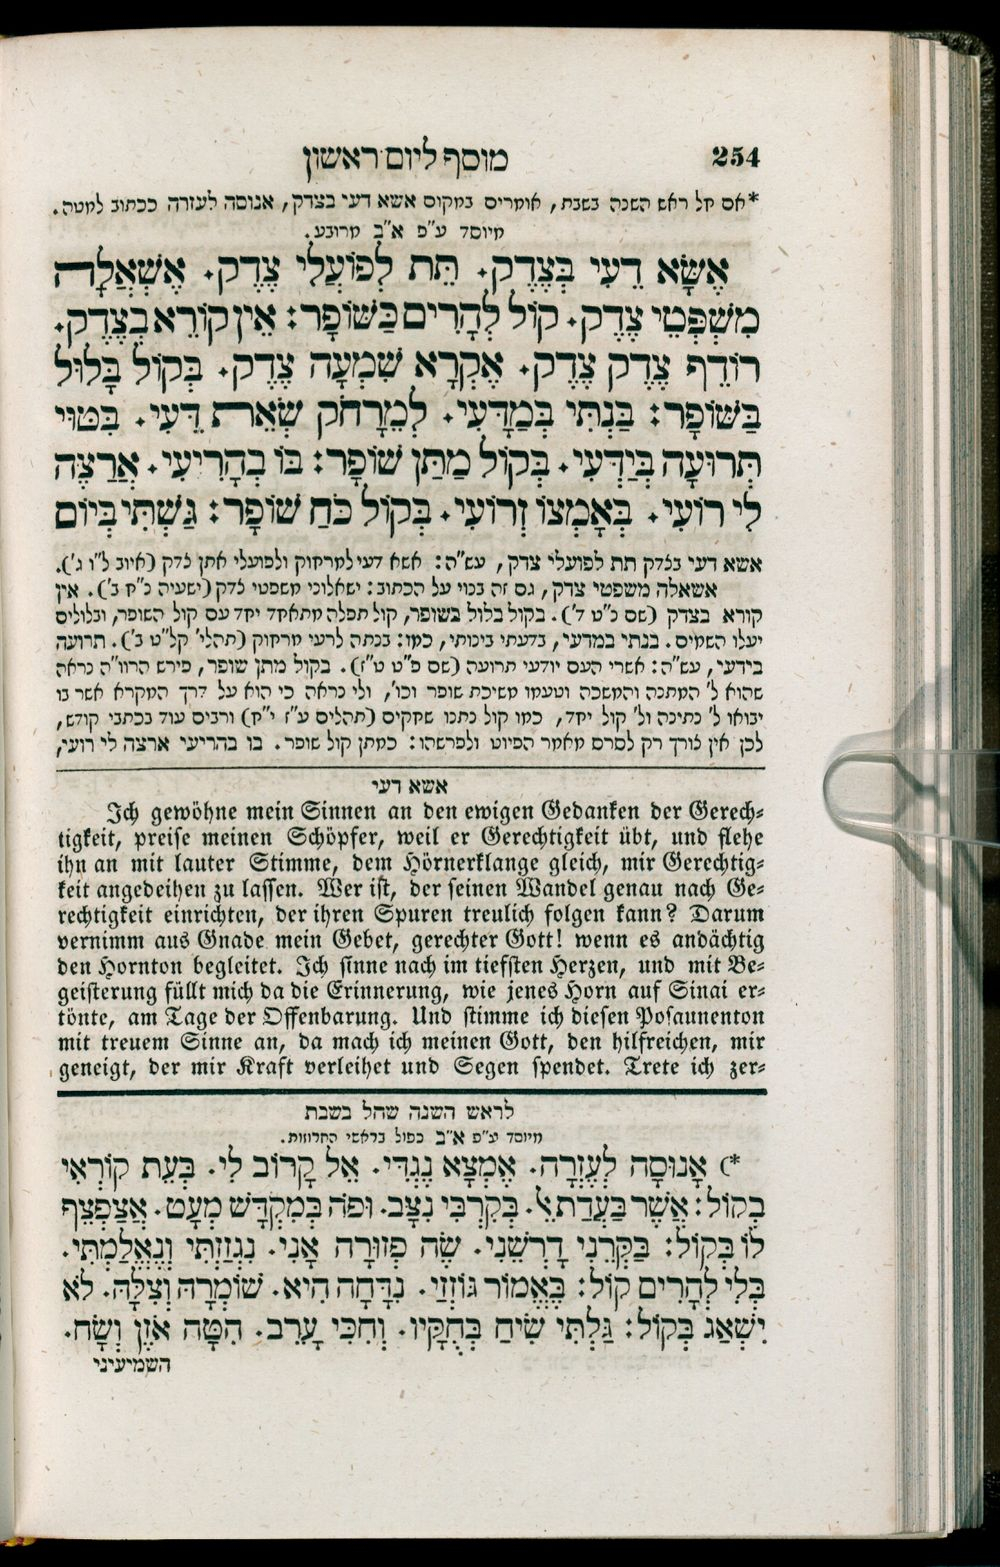 254 מוסף ליום ראשון
*אם חל ראש השנה בשבת, אומרים במקום אשא דעי בצדק, אנוסה לעזרה ככתוב למטה.
מיוסד ע"פ א"ב מרובע.
אֶשָּׂא דֵעִי בְּצֶדֶק. תֵּת לְפוֹעֲלִי צֶדֶק. אֶשְׁאֲלָה
מִשְׁפְּטֵי צֶדֶק. קוֹל לְהָרִים כַּשּׁוֹפָר: אֵין קוֹרֵא בְצֶדֶק.
רוֹדֵף צֶדֶק צֶדֶק. אֶקְרָא שִׁמְעָה צֶדֶק. בְּקוֹל בָּלוּל
בַּשּׁוֹפָר: בַּנְתִּי בְּמַדָּעִי. לְמֵרָחֹק שְׂאֵת דֵּעִי. בִּטּוּי
תְּרוּעָה בְּיַדְּעִי. בְּקוֹל מַתַּן שׁוֹפָר: בּוֹ בְהָרִיעִי. אֲרַצֶּה
לִי רוֹעִי. בְּאָמְצוֹ זְרוֹעִי. בְּקוֹל כֹּחַ שׁוֹפָר: גַּשְׁתִּי בְּיוֹם
אשא דעי בצדק תת לפועלי צדק, עש"ה: אשא דעי למרחוק ולפועלי אתן צדק (איוב ל"ו ג').
אשאלה משפטי צדק, גם זה בנוי על הכתוב: ישאלוני משפטי צדק (ישעיה נ"ח ב'). אין
קורא בצדק (שם נ"ט ד'). בקול בלול בשופר, קול תפלה מתאחד יחד עם קול השופר, ובלולים
יעלו השמים. בנתי במדעי, בדעתי בינותי, כמו: בנתה לרעי מרחוק (תהלי' קל"ט ב'). תרועה
בידעי, עש"ה: אשרי העם יודעי תרועה (שם פ"ט ט"ז). בקול מתן שופר, פירש הרוו"ה נראה
שהוא ל' המתנה והמשכה וטעמו משיכת שופר וכו', ולי נראה כי הוא על דרך המקרא אשר בו
יבואו ל' נתינה ול' קול יחד, כמו קול נתנו שחקים (תהלים ע"ז י"ח) ורבים עוד בכתבי קודש,
לכן אין צורך רק לסרס מאמר הפיוט ולפרשהו: כמתן קול שופר. בו בהריעי ארצה לי רועי,
אשא דעי
Ich gewöhne mein Sinnen an den ewigen Gedanken der Gerech-
tigkeit, preise meinen Schöpfer, weil er Gerechtigkeit übt, und flehe
ihn an mit lauter Stimme, dem Hörnerklange gleich, mir Gerechtig-
keit angedeihen zu lassen. Wer ist, der seinen Wandel genau nach Ge-
rechtigkeit einrichten, der ihren Spuren treulich folgen kann? Darum
vernimm aus Gnade mein Gebet, gerechter Gott! wenn es andächtig
den Hornton begleitet. Ich sinne nach im tiefsten Herzen, und mit Be-
geisterung füllt mich da die Erinnerung, wie jenes Horn auf Sinai er-
tönte, am Tage der Offenbarung. Und stimme ich diesen Posaunenton
mit treuem Sinne an, da mach ich meinen Gott, den hilfreichen, mir
geneigt, der mir Kraft verleihet und Segen spendet. Trete ich zer-
לראש השנה שחל בשבת
מיוסד ע"פ א"ב כפול בראשי החרוזות.
*) אָנוּסָה לְעֶזְרָה. אֶמְצָא נֶגְדִּי. אֵל קָרוֹב לִי. בְּעֵת קוֹרְאִי
בְקוֹל: אֲשֶׁר בַּעֲדַת אֵל. בְּקִרְבִּי נִצָּב. וּפֹה בְּמִקְדָּשׁ מְעָט. אֲצַפְצֵף
לוֹ בְּקוֹל: בַּקְּרֵנִי דָרְשֵׁנִי. שֶׂה פְזוּרָה אָנִי. נִגְזַזְתִּי וְנֶאֱלַמְתִּי.
בְּלִי לְהָרִים קוֹל: בֶּאֱמוֹר גּוֹזְזַי. נִדָּחָה הִיא. שׁוֹמְרָהּ וְצִלָּהּ. לֹא
יִשְׁאַג בְּקוֹל: גַּלְתִּי שִׂיחַ בְּחֻקָּיו. וְחִכִּי עָרֵב. הִטָּה אֹזֶן וְשָׂח.
השמיעיני